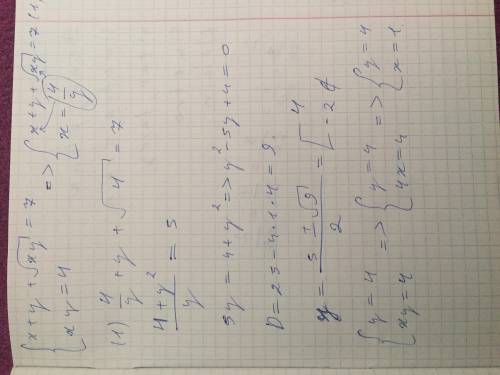 { x+y+√xy = 7 => { x+y+√xy = 7 (1)
{ xy = 4 { x = 4/y
(1) 4/y + y + √4 = 7
(4+y²)/y = 5
5y = 4+y² => y²-5y+4=0
D = 25-4·1·4 = 9
y = (5±√9)/2 = [ 4
{ y=4 => { y=4 => { y=4
{ xy=4 { 4x=4 { x=1.